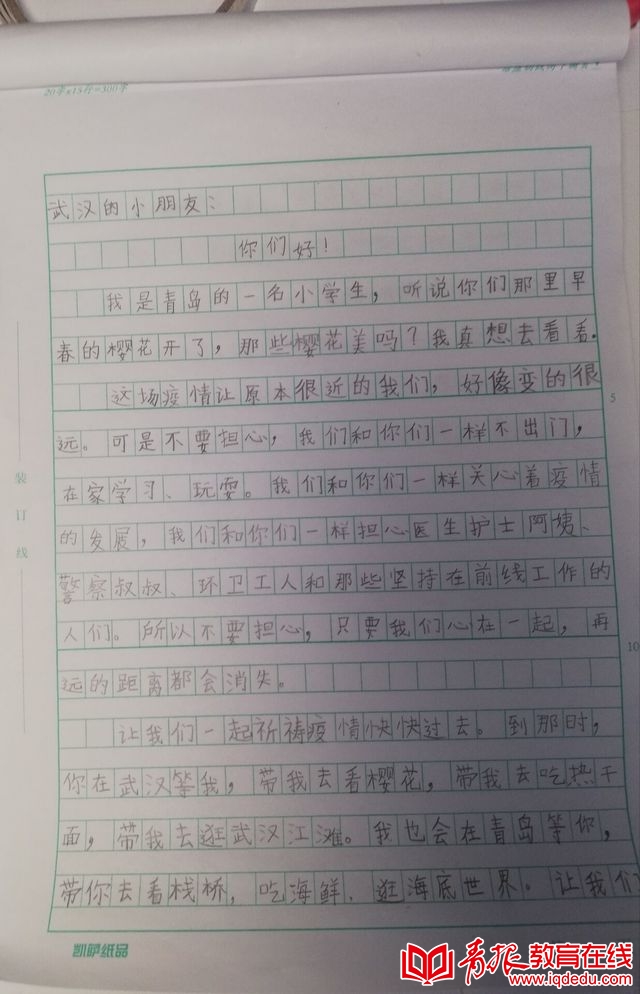 20字×15行=300字
武汉的小朋友：
你们好！
我是青岛的一名小学生，听说你们那里早
春的樱花开了，那些樱花美吗？我真想去看看.
这场疫情让原本很近的我们，好像变的很
远。可是不要担心，我们和你们一样不出门，
5
在家学习、玩耍。我们和你们一样关心着疫情
的发展，我们和你们一样担心医生护士阿姨、
警察叔叔、环卫工人和那些坚持在前线工作的
人们。所以不要担心，只要我们心在一起，再
10
远的距离都会消失。
让我们一起祈祷疫情快快过去。到那时，
你在武汉等我，带我去看樱花，带我去吃热干
面，带我去逛武汉江滩。我也会在青岛等你，
带你去看栈桥，吃海鲜、逛海底世界。让我们
装订线
凯萨纸品
青报教育在线
www.iqdedu.com